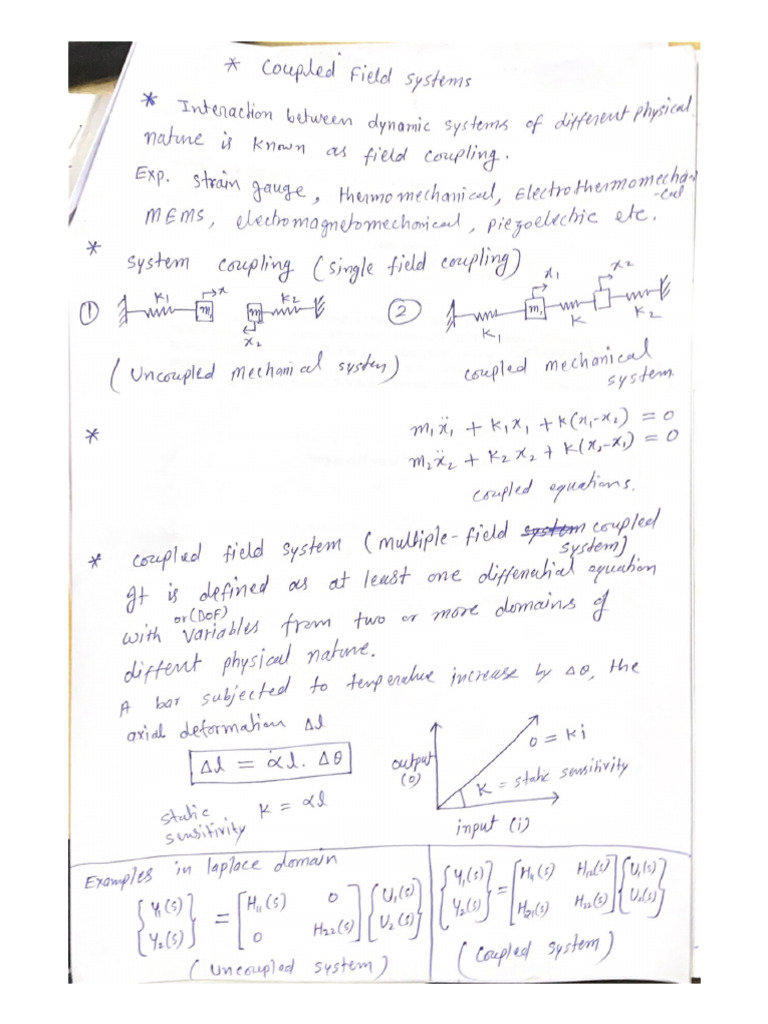 * Coupled Field systems
* Interaction between dynamic systems of different physical
nature is known as field coupling.
Exp. strain gauge, thermomechanical, Electrothermomecha
-cal
MEMS, electromagnetomechanical, piezoelectric etc.
* system coupling (single field coupling)
① K₁ m x m K₂ x₂
② K₁ m₁ x₁ K x₂ K₂
(Uncoupled Mechanical system)
coupled mechanical
system.
*
m₁ẍ₁ + K₁x₁ + K(x₁-x₂) = 0
m₂ẍ₂ + K₂x₂ + K(x₂-x₁) = 0
coupled equations.
* coupled field system (multiple-field system coupled
system)
It is defined as at least one differential equation
or (DOF)
with variables from two or more domains of
diffent physical nature.
A bar subjected to temperature increase by Δθ, the
axial deformation Δl
Δl = αl. Δθ
static
sensitivity K = αl
output
(o)
o = Ki
K = static sensitivity
input (i)
Examples in laplace domain
{Y₁(s) Y₂(s)} = [H₁₁(s) 0 0 H₂₂(s)] {U₁(s) U₂(s)}
(Uncoupled system)
{Y₁(s) Y₂(s)} = [H₁₁(s) H₁₂(s) H₂₁(s) H₂₂(s)] {U₁(s) U₂(s)}
(Coupled system)